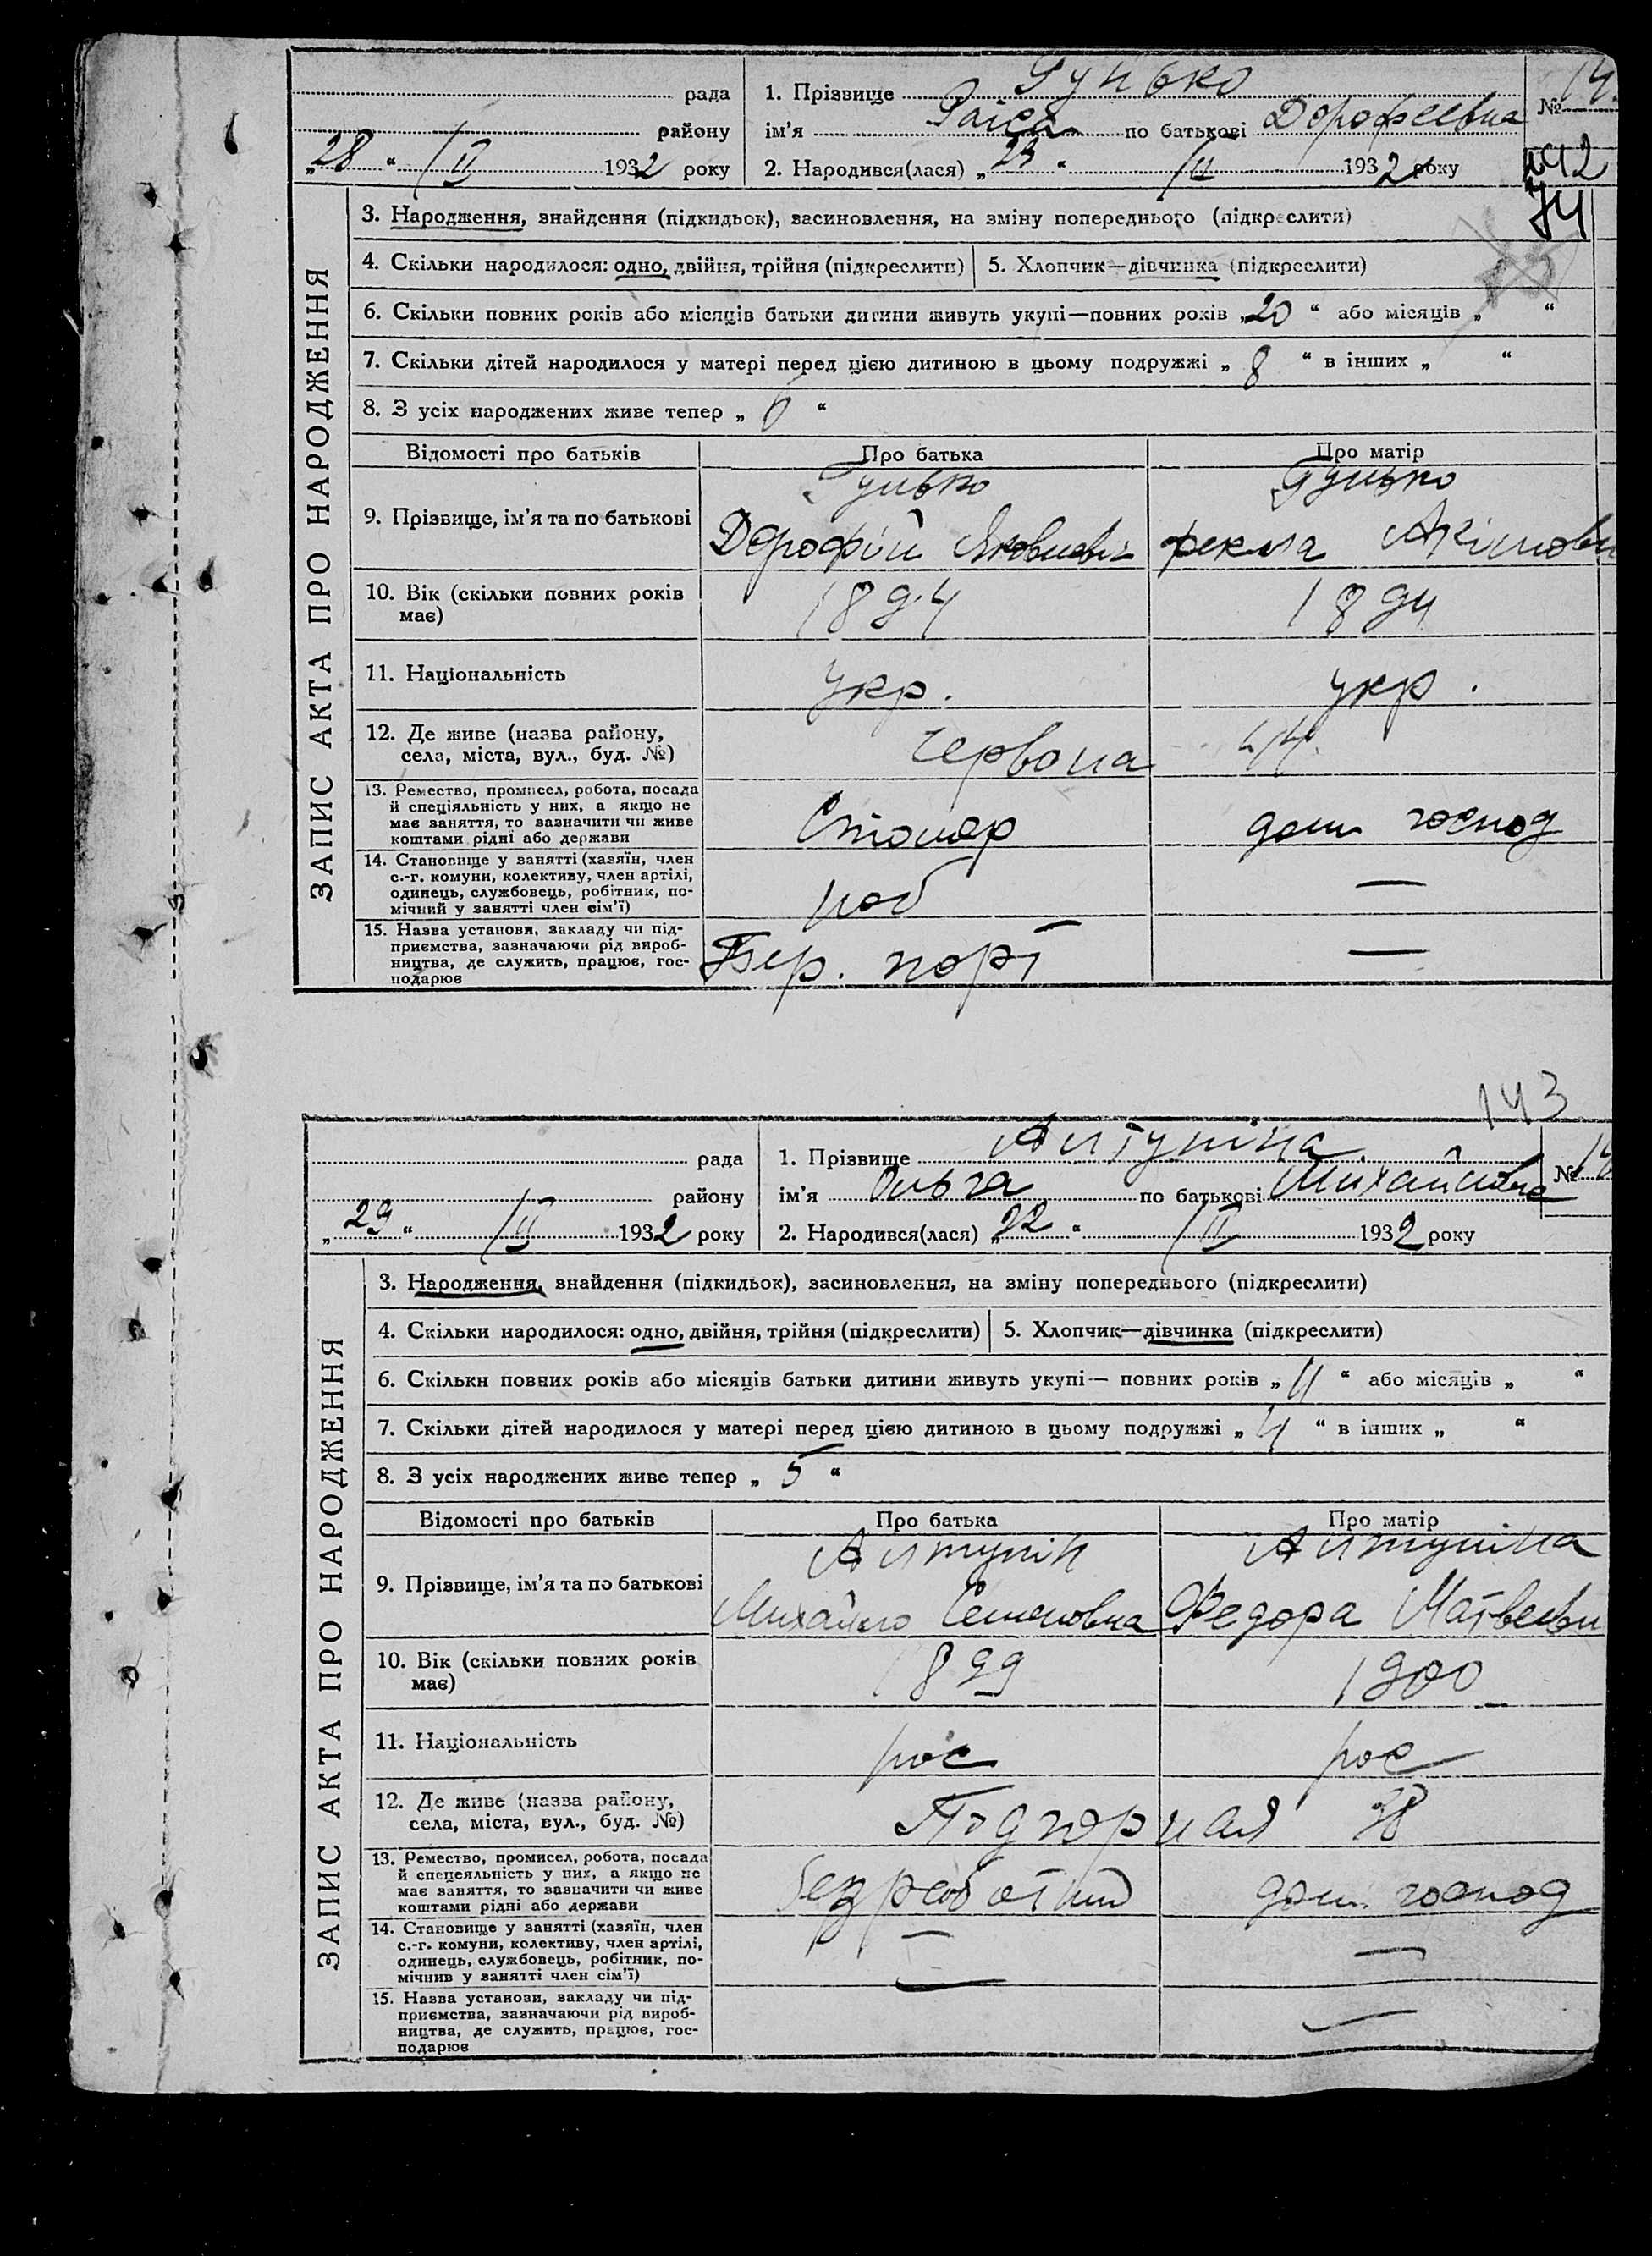 рада
1. Прізвище Гунько
№ 14
району
ім'я Раіса по батькові Дорофеевна
„28“ /II 1932 року
2. Народився(лася) „23“ /II 1932 року
142
74
ЗАПИС АКТА ПРО НАРОДЖЕННЯ
3. Народження, знайдення (підкидьок), засиновлення, на зміну попереднього (підкреслити)
4. Скільки народилося: одно, двійня, трійня (підкреслити)
5. Хлопчик—дівчинка (підкреслити)
6. Скільки повних років або місяців батьки дитини живуть укупі—повних років „20“ або місяців „ “
7. Скільки дітей народилося у матері перед цією дитиною в цьому подружжі „8“ в інших „ “
8. З усіх народжених живе тепер „6“
Відомості про батьків
Про батька
Про матір
9. Прізвище, ім'я та по батькові
Гунько
Дорофій Яковлевіч
Гунько
Фекла
10. Вік (скільки повних років
має)
1894
1894
11. Національність
укр.
укр.
12. Де живе (назва району,
села, міста, вул., буд. №)
Червона
44
13. Ремество, промисел, робота, посада
й спеціяльність у них, а якщо не
має заняття, то зазначити чи живе
коштами рідні або держави
Столяр
дом. господ
14. Становище у занятті (хазяїн, член
с.-г. комуни, колективу, член артілі,
одинець, службовець, робітник, по-
мічний у занятті член сім'ї)
роб
—
15. Назва установи, закладу чи під-
приємства, зазначаючи рід вироб-
ництва, де служить, працює, гос-
подарює
Бер. порт
—
143
рада
1. Прізвище Алтуніна
№ 14
району
ім'я Ольга по батькові Михайловна
„29“ /II 1932 року
2. Народився(лася) „22“ /II 1932 року
ЗАПИС АКТА ПРО НАРОДЖЕННЯ
3. Народження, знайдення (підкидьок), засиновлення, на зміну попереднього (підкреслити)
4. Скільки народилося: одно, двійня, трійня (підкреслити)
5. Хлопчик—дівчинка (підкреслити)
6. Скільки повних років або місяців батьки дитини живуть укупі— повних років „11“ або місяців „ “
7. Скільки дітей народилося у матері перед цією дитиною в цьому подружжі „4“ в інших „ “
8. З усіх народжених живе тепер „5“
Відомості про батьків
Про батька
Про матір
9. Прізвище, ім'я та по батькові
Алтунін
Михайло Семеновна
Алтуніна
Федора Матвеевн
10. Вік (скільки повних років
має)
1899
1900
11. Національність
рос
рос
12. Де живе (назва району,
села, міста, вул., буд. №)
Подгорная 38
13. Ремество, промисел, робота, посада
й спецеяльність у них, а якщо не
має заняття, то зазначити чи живе
коштами рідні або держави
безработний
дом. господ
14. Становище у занятті (хазяїн, член
с.-г. комуни, колективу, член артілі,
одинець, службовець, робітник, по-
мічнив у занятті член сім'ї)
—
—
15. Назва установи, закладу чи під-
приємства, зазначаючи рід вироб-
ництва, де служить, працює, гос-
подарює
—
—